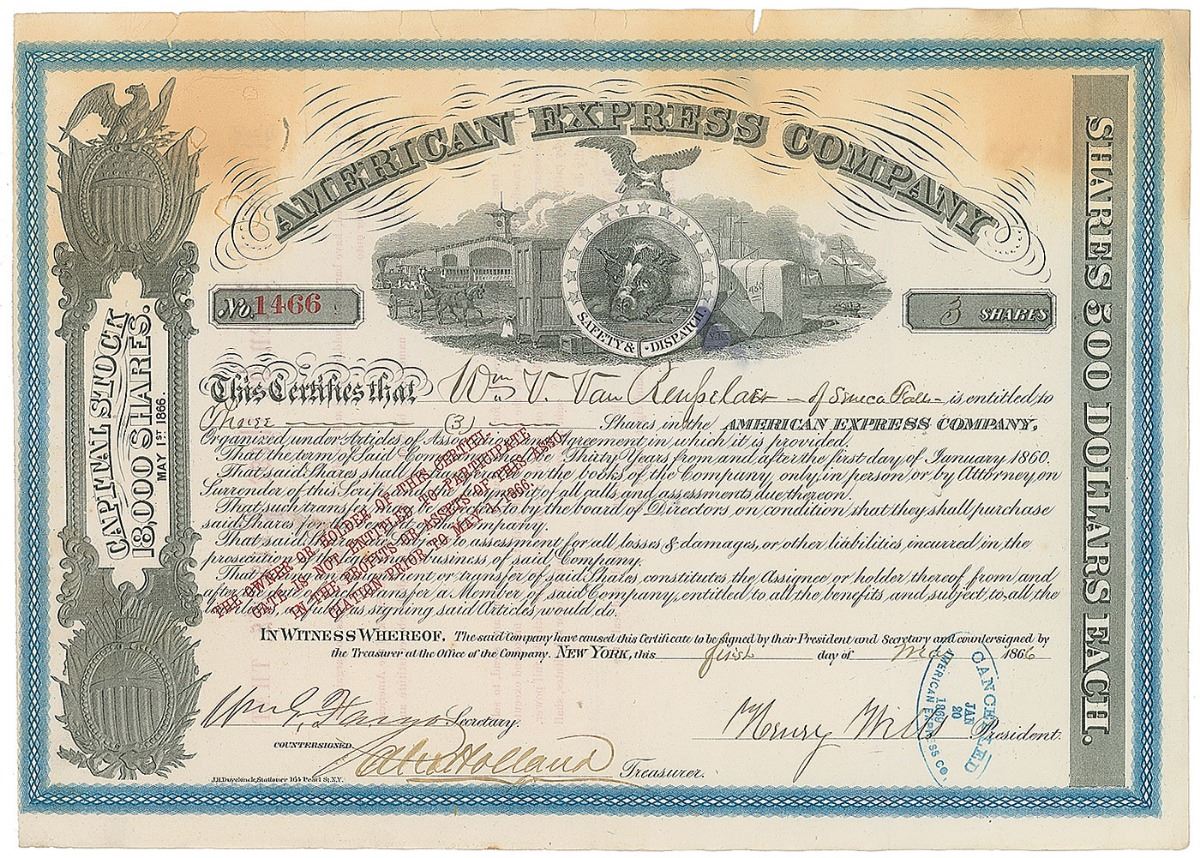 AMERICAN EXPRESS COMPANY
SAFETY & DISPATCH
No. 1466
3 SHARES
CAPITAL STOCK
18,000 SHARES.
MAY 1ST 1866.
SHARES 500 DOLLARS EACH.
This Certifies that Wm V. Van Rensselaer of Seneca Falls is entitled to
Three (3) Shares in the AMERICAN EXPRESS COMPANY,
Organized under Articles of Association agreement in which it is provided.
That the term of Said Company Thirty Years from and after the first day of January 1860.
That said Shares shall be on the books of the Company, only, in person, or by Attorney, on
Surrender of this Scrip and the payment of all calls and assessments due thereon.
That such transfer to by the board of Directors on condition that they shall purchase
said Shares for the Company.
That said to assessment for all losses & damages, or other liabilities incurred in the
prosecution business of said Company.
That an or transfer of said Shares, constitutes the Assignee or holder thereof, from and
after transfer a Member of said Company, entitled to all the benefits and subject to all the
as signing said Articles would do.
THE OWNER OR HOLDER OF THIS CERTIFI-
CATE IS NOT ENTITLED TO PARTICIPATE
IN THE PROFITS OR ASSETS OF THIS ASSO-
CIATION PRIOR TO MAY 1, 1866.
IN WITNESS WHEREOF, The said Company have caused this Certificate to be signed by their President and Secretary and countersigned by
the Treasurer at the Office of the Company. NEW YORK, this first day of May 1866
Wm G Fargo Secretary.
Henry Wells President.
COUNTERSIGNED
Alex Holland Treasurer.
CANCELLED
JAN
20
1869
AMERICAN EXPRESS CO.
J.H. Duyckinck, Stationer 164 Pearl St. N.Y.